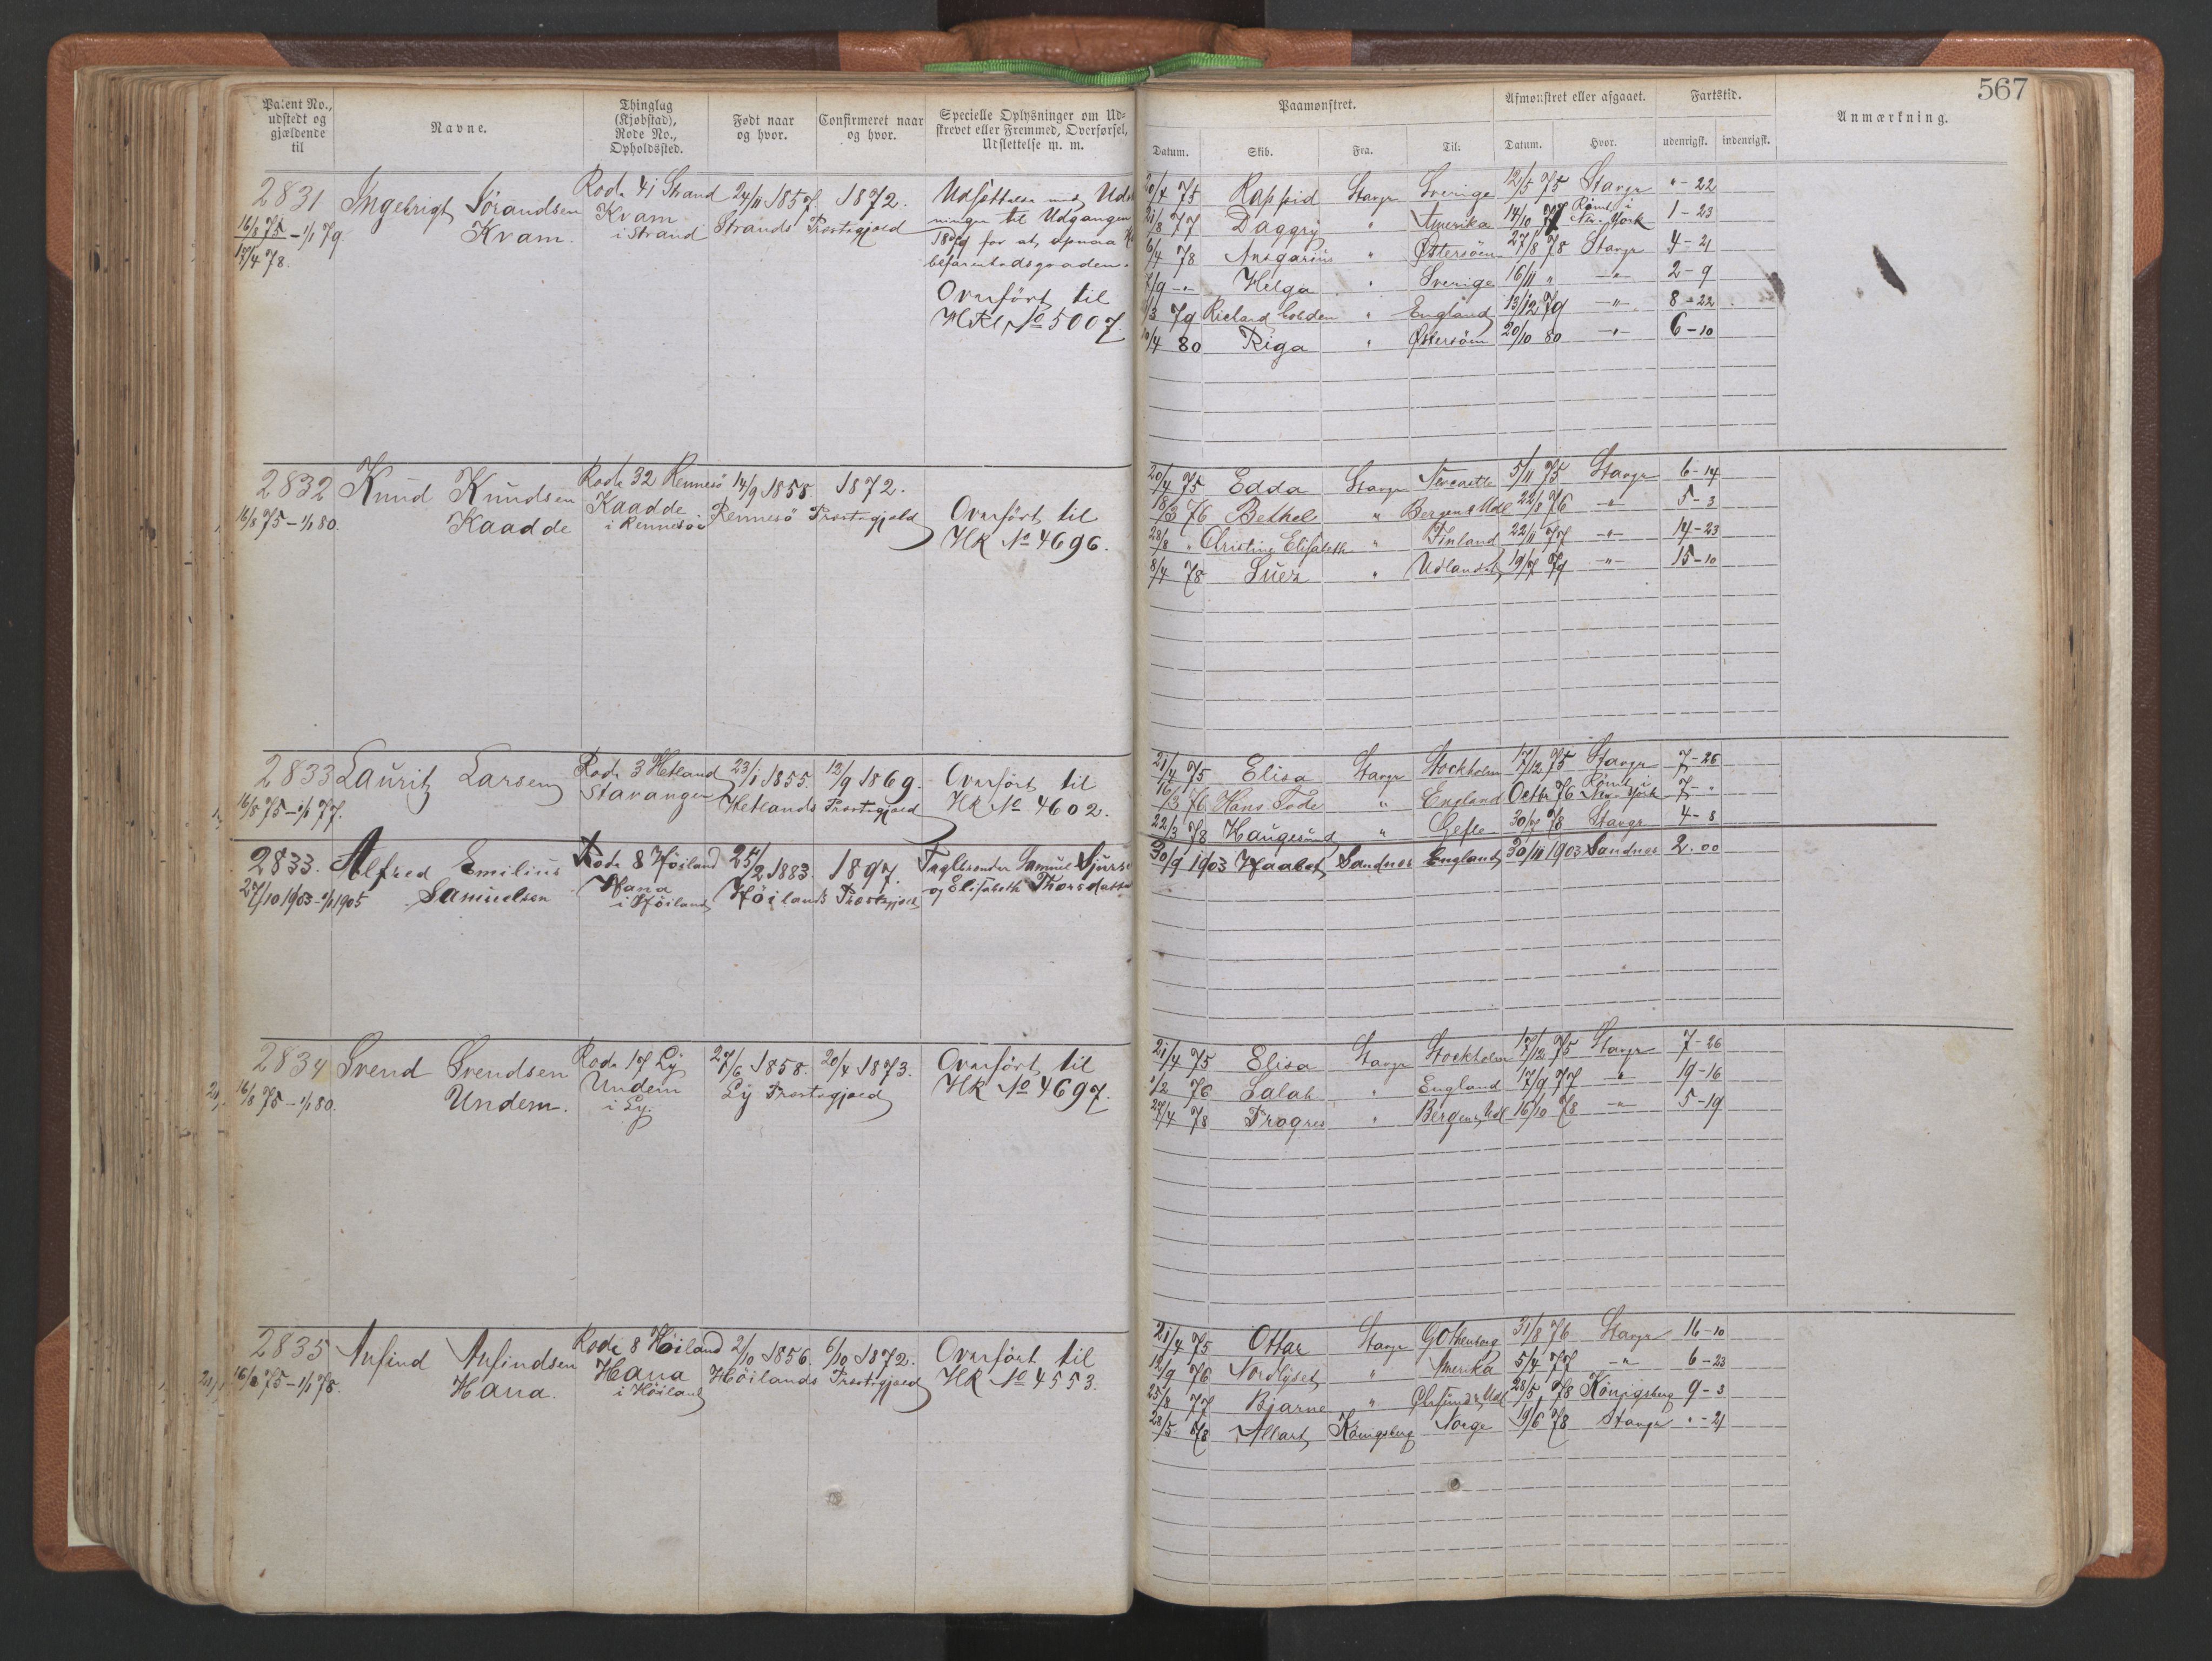 567
Patent No., udstedt og gjældende til
Navne.
Thinglag (Kjøbstad), Rode No., Opholdssted.
Født naar og hvor.
Confirmeret naar og hvor.
Specielle Oplysninger om Ud-
strevet eller Fremmed, Overførsel,
Udslettelse m. m.
Paamønstret.
Afmønstret eller afgaaet.
Fartstid.
Anmærkning.
Datum. Skib. Fra. Til: Datum. Hvor. udenrigsk. indenrigsk.
2831 Ingebrigt Sörandsen Rode 41 Strand 24/11 1857. 1872. Udsættelse med
16/8 75 - 1/1 79. Kvam. Kvam i Strand Strands Præstegjæld
17/4 78. til Udgangen
for at opnaa
befarenhedsgraden.
Overført til
No 5007.
20/4 75 Rapid Stavgr Sverige 12/5 75 Stavgr " - 22
21/8 77 Daggry " Amerika 14/10 77 Rømt i New York 1 - 23
6/4 78 Ansgarius " Østersöen 27/8 78 Stavgr 4 - 21
7/9 - " - Helga " Sverige 16/11 " - " - 2 - 9
1/3 79 Richard Cobden " England 13/12 79 - " - 8 - 22
10/4 80 Riga " Østersöen 20/10 80 - " - 6 - 10
2832 Knud Knudsen Rode 32 Rennesö 14/9 1858. 1872.
16/8 75 - 1/1 80. Kaadde Kaadde i Rennesö Rennesö Præstegjæld Overført til
HK No 4696.
20/4 75 Edda Stavgr Newcastle 5/11 75 Stavgr 6 - 14
18/3 76 Bethel " Bergen & Udl 22/8 76 " 5 - 3
28/8 " Christine Elisabeth " Finland 22/11 77 - " - 14 - 23
8/4 78 Suez " Udlandet 19/7 79 - " - 15 - 10
2833 Lauritz Larsen Rode 3 Hetland 23/1 1855. 12/9 1869. Overført til
16/8 75 - 1/1 77. Stavanger Hetlands Præstegjæld HK No 4602.
21/4 75 Elisa Stavgr Stockholm 17/12 75 Stavgr 7 - 26
16/3 76 Hans Tode " England Octbr 76 Rømt i New York 7 - "
22/3 78 Haugesund " Gefle 30/7 78 Stavgr 4 - 8
2833. Alfred Emilius Rode 8 Höiland 25/2 1883. 1897.
27/10 1903 - 1/1 1905 Samuelsen Hana i Höiland Höilands Præstegjæld og Elisabeth
30/9 1903 Haabet Sandnes England 30/11 1903 Sandnes 2.00
2834 Svend Svendsen Rode 17 Ly 27/6 1858. 20/4 1873. Overført til
16/8 75 - 1/1 80. Undem. Undem i Ly. Ly Præstegjæld HK No 4697.
21/4 75 Elisa Stavgr Stockholm 17/12 75 Stavgr 7 - 26
1/2 76 Salah " England 17/9 77 " 19 - 16
27/4 78 Progres " Bergen & Udl 16/10 78 - " - 5 - 19
2835 Anfind Anfindsen Rode 8 Höiland 2/10 1856. 6/10 1872. Overført til
16/8 75 - 1/1 78. Hana. Hana i Höiland Höilands Præstegjæld HK No 4553.
21/4 75 Ottar Stavgr Gothenborg 31/8 76 Stavgr 16 - 10
12/9 76 Nordlyset " Amerika 5/4 77 - " - 6 - 23
25/8 77 Bjarne " 28/5 78 Königsberg 9 - 3
28/5 78 Allart Königsberg Norge 19/6 78 Stavgr " - 21